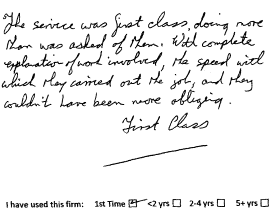 The service was first class, doing more
than was asked of them. With complete
explanation of work involved, the speed with
which they carried out the job, and they
couldn't have been more obliging.
First Class
I have used this firm: 1st Time <2 yrs 2-4 yrs 5+ yrs